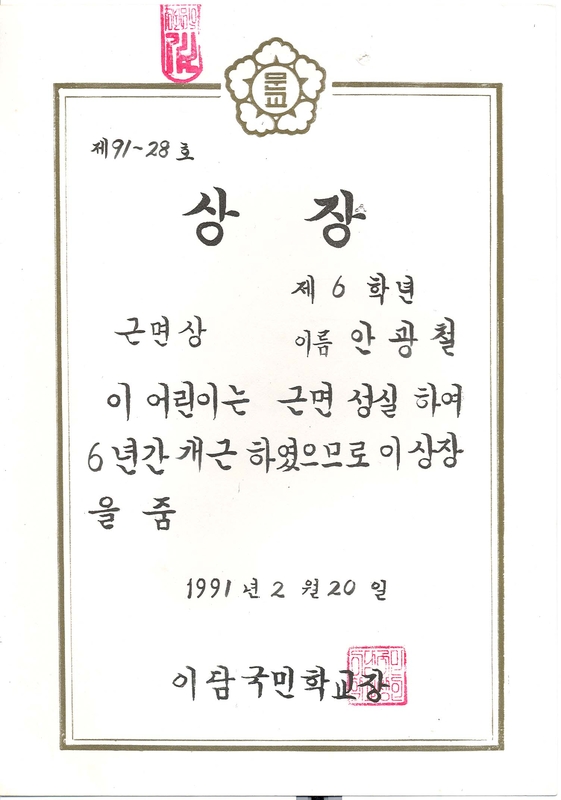 문교
제91-28호
상 장
제 6 학년
근면상 이름 안광철
이 어린이는 근면 성실 하여
6년간 개근 하였으므로 이 상장
을 줌
1991년 2월 20일
이담국민학교장